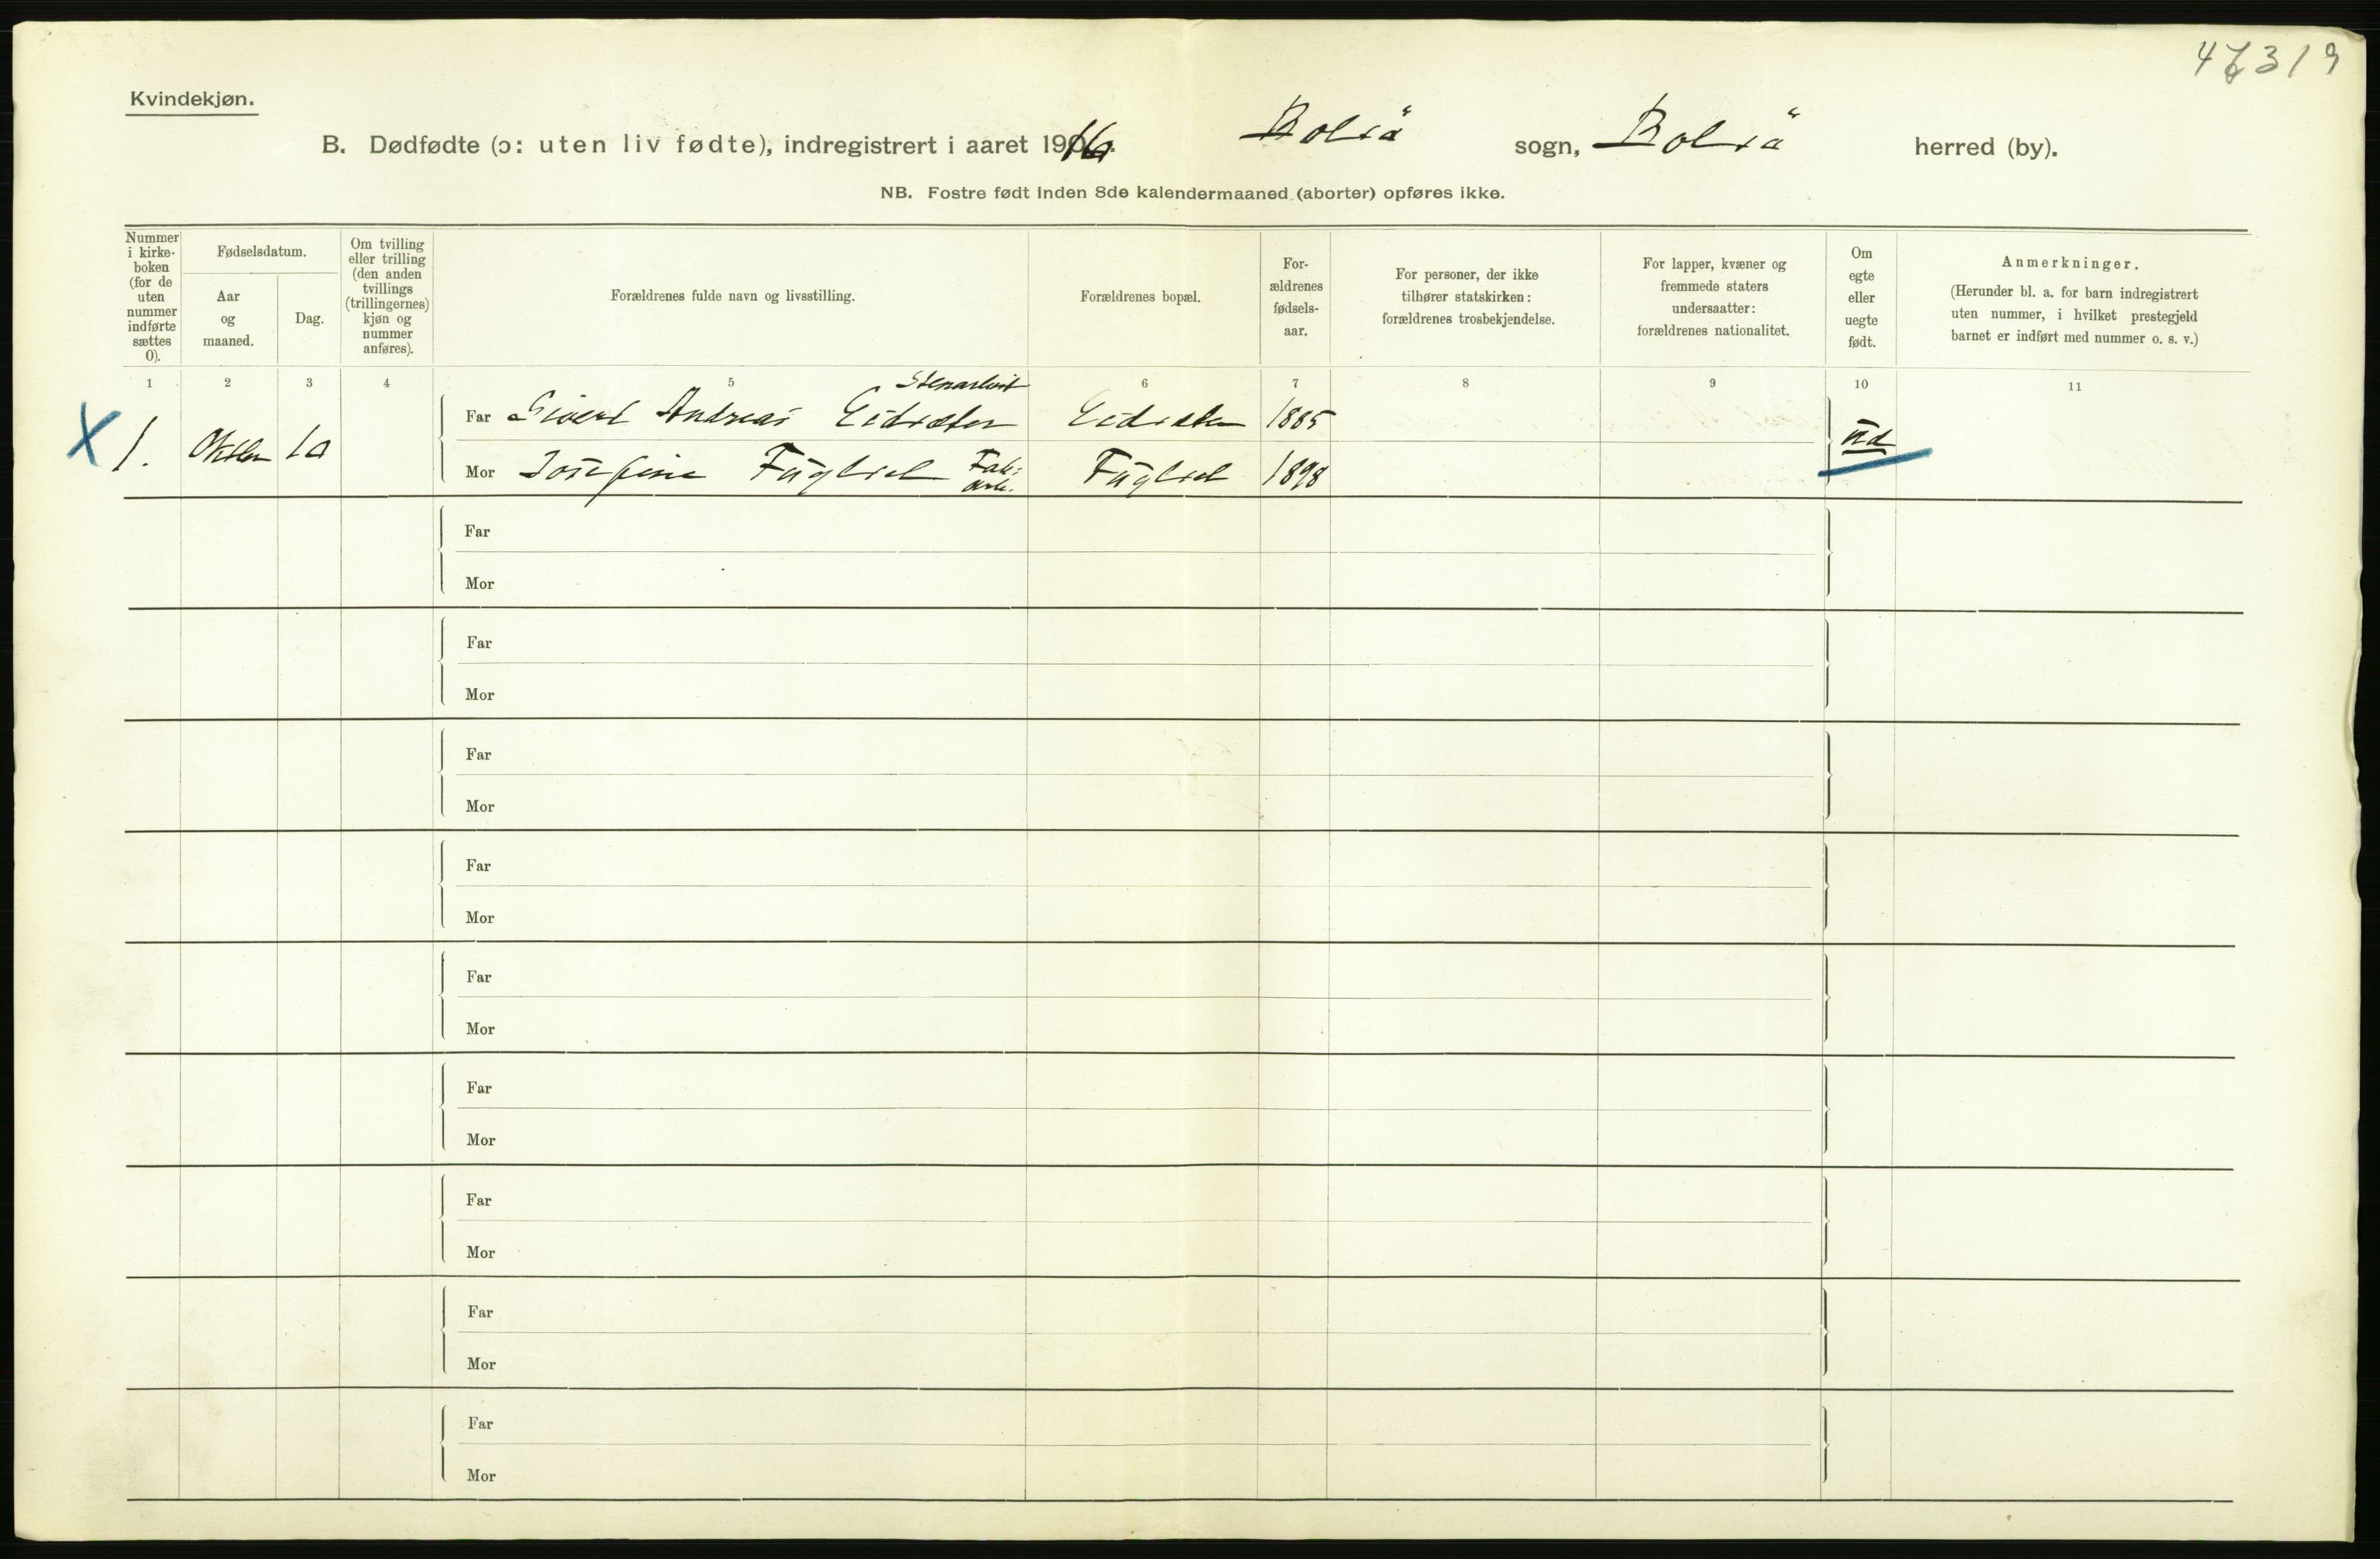 Kvindekjøn.
B. Dødfødte (ɔ: uten liv fødte), indregistrert i aaret 1916. Bolsö sogn, Bolsö herred (by).
NB. Fostre født inden 8de kalendermaaned (aborter) opføres ikke.
Nummer i kirke-boken (for de uten nummer indførte sættes 0).
Fødselsdatum.
Aar og maaned.
Dag.
Om tvilling eller trilling (den anden tvillings (trillingernes) kjøn og nummer anføres).
Forældrenes fulde navn og livsstilling.
Forældrenes bopæl.
For-ældrenes fødsels-aar.
For personer, der ikke tilhører statskirken: forældrenes trosbekjendelse.
For lapper, kvæner og fremmede staters undersaatter: forældrenes nationalitet.
Om egte eller uegte født.
Anmerkninger.
(Herunder bl. a. for barn indregistrert uten nummer, i hvilket prestegjeld barnet er indført med nummer o. s. v.)
1 2 3 4 5 6 7 8 9 10 11
X 1. Oktbr 10
Far Sivert Andreas Eidsæter Eidsæter 1885
Mor Josefine Fuglset Fab: arb. Fuglset 1898
Far
Mor
Far
Mor
Far
Mor
Far
Mor
Far
Mor
Far
Mor
Far
Mor
Far
Mor
Far
Mor